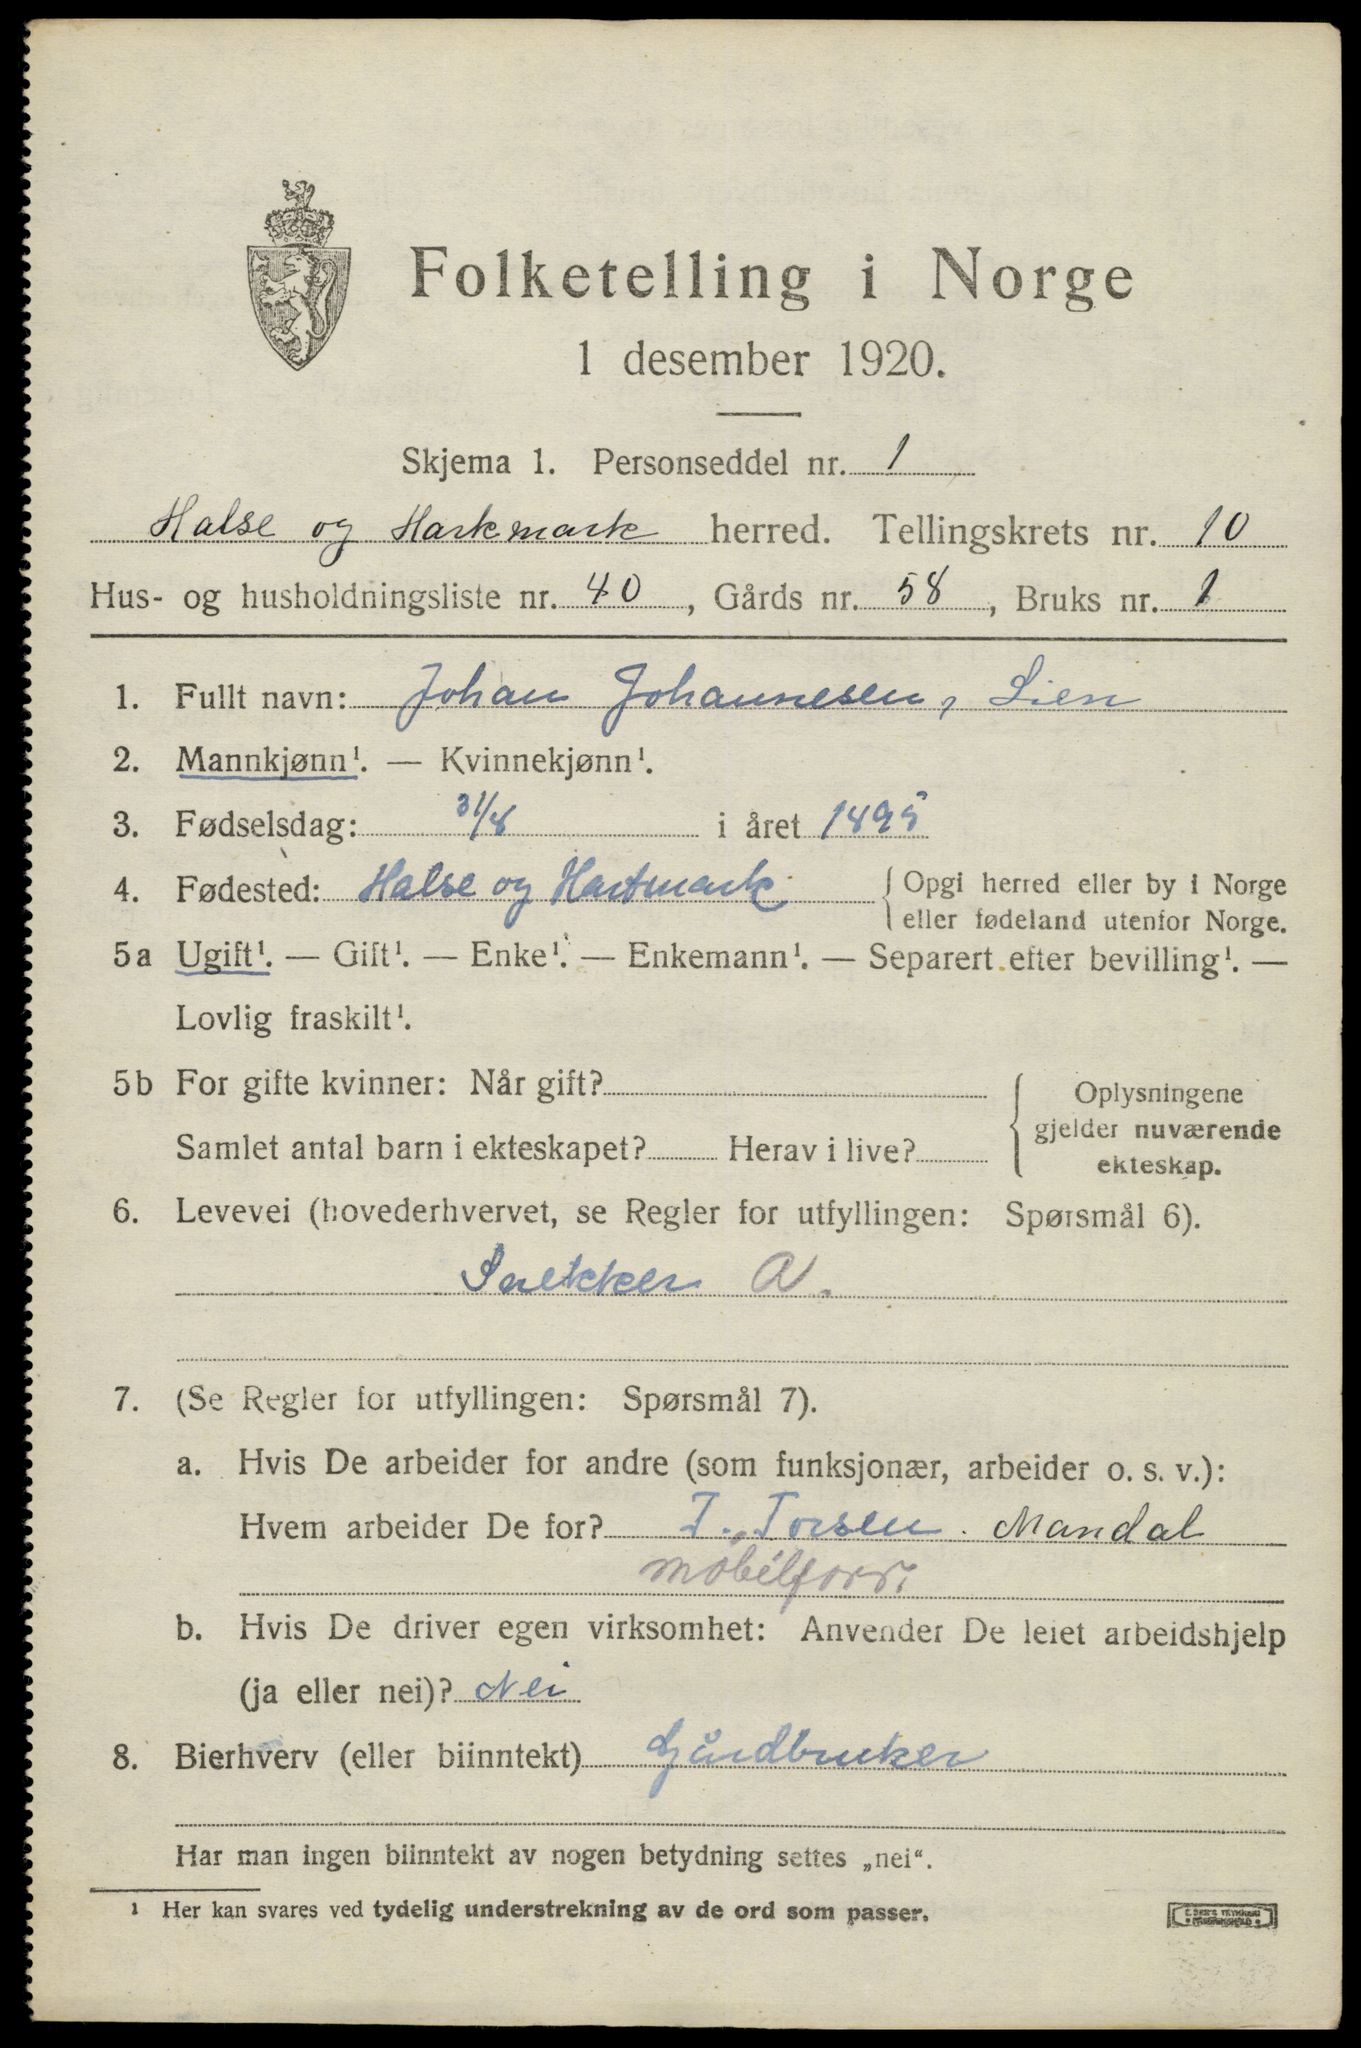 Folketelling i Norge
1 desember 1920.
Skjema 1. Personseddel nr. 1
Halse og Harkmark herred. Tellingskrets nr. 10
Hus- og husholdningsliste nr. 40, Gårds nr. 58, Bruks nr. 1
1. Fullt navn: Johan Johannesen, Lien
2. Mannkjønn¹. — Kvinnekjønn¹.
3. Fødselsdag: 31/8 i året 1895
4. Fødested: Halse og Hartmark { Opgi herred eller by i Norge
eller fødeland utenfor Norge.
5a Ugift¹. — Gift¹. — Enke¹. — Enkemann¹. — Separert efter bevilling¹. —
Lovlig fraskilt¹.
5b For gifte kvinner: Når gift? { Oplysningene
gjelder nuværende
ekteskap.
Samlet antal barn i ekteskapet? Herav i live?
6. Levevei (hovederhvervet, se Regler for utfyllingen: Spørsmål 6).
Snekker A.
7. (Se Regler for utfyllingen: Spørsmål 7).
a. Hvis De arbeider for andre (som funksjonær, arbeider o. s. v.):
Hvem arbeider De for? T. Torsen. Mandal
møbelforr.
b. Hvis De driver egen virksomhet: Anvender De leiet arbeidshjelp
(ja eller nei)? Nei
8. Bierhverv (eller biinntekt) Gårdbruker
Har man ingen biinntekt av nogen betydning settes „nei“.
¹ Her kan svares ved tydelig understrekning av de ord som passer.